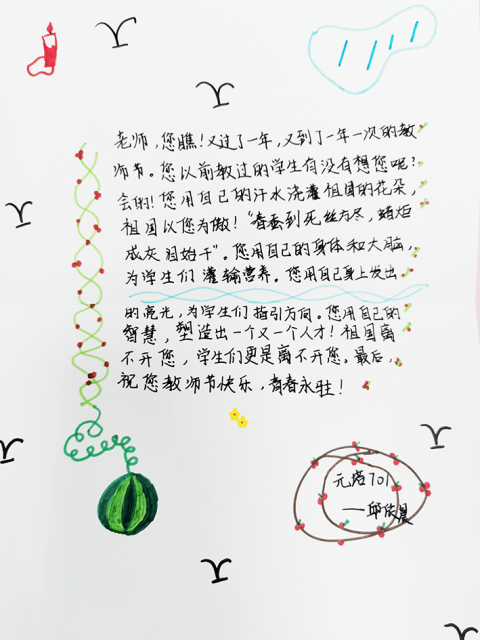 老师，您瞧！又过了一年，又到了一年一次的教
师节。您以前教过的学生有没有想您呢？
会的！您用自己的汗水浇灌祖国的花朵，
祖国以您为傲！“春蚕到死丝方尽，蜡炬
成灰泪始干”。您用自己的身体和大脑，
为学生们灌输营养。您用自己身上发出
的亮光，为学生们指引方向。您用自己的
智慧，塑造出一个又一个人才！祖国离
不开您，学生们更是离不开您。最后，
祝您教师节快乐，青春永驻！
元培701
——邱